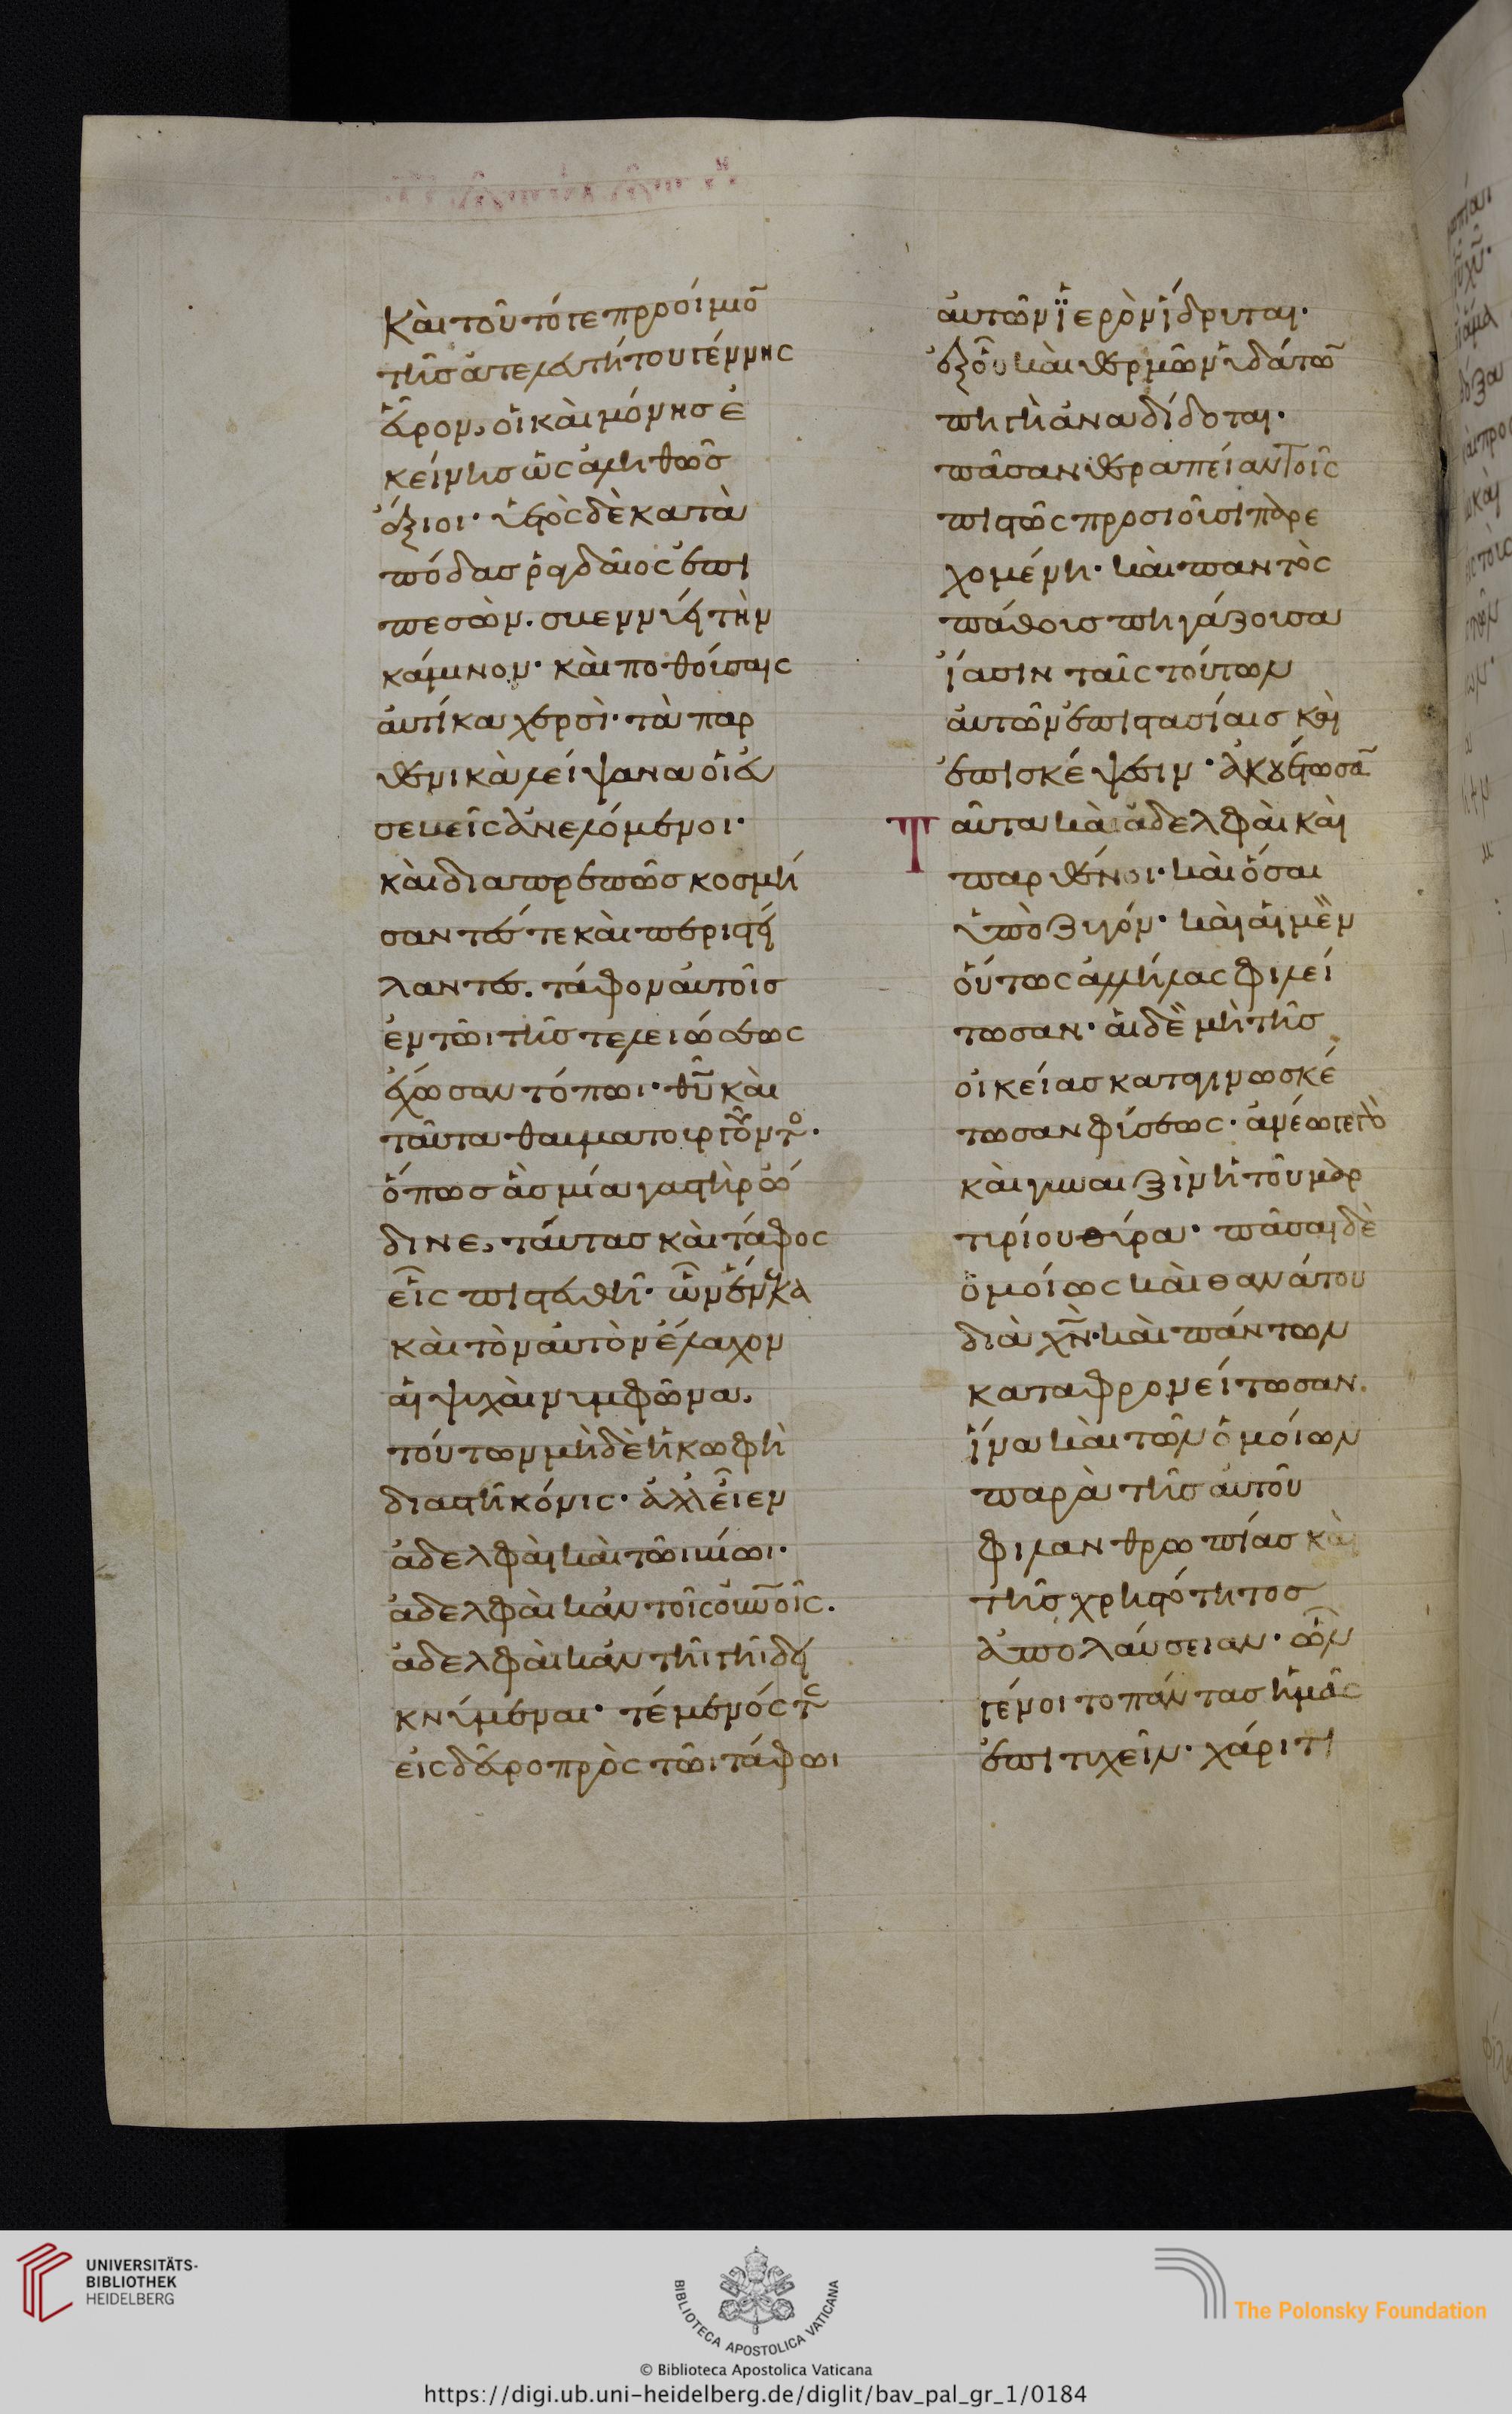 Καὶ τοῦτό τε προοίμιο̄
τῆς ἀτελευτήτου γέννης
εὗρον, οἱ καὶ μόνης ἐ
κείνης ὡς ἀληθῶς
ἄξιοι· ὑετὸς δὲ κατὰ
πόδας ῥαγδαῖος ἐπι
πεσὼν. σβεννύει τὴν
κάμινον· καὶ ποθούσαις
αὐτίκα χερσὶ· τὰ παρ
θενικὰ λείψανα οἱ εὐ
σεβεῖς ἀνελόμενοι·
καὶ διαπρεπῶς κοσμή
σαντές τε καὶ περιστεί
λαντες. τάφον αὐτοῖς
ἐν τῶι τῆς τελειώσεως
ἔχωσαν τόπωι· θῡ καὶ
ταῦτα θαυματουργοῦντο·
ὅπως ἃς μία γαστὴρ ὤ
δινε, ταύτας καὶ τάφος
εἷς πιστευθῆ· ὧν ἕνεκα
καὶ τὸν αὐτὸν ἔλαχον
αἱ ψυχαὶ νυμφῶνα,
τούτων μηδὲ ἡ κωφὴ
διαστῆ κόνις· ἀλλ' εἶεν
ἀδελφαὶ καὶ τῶι βίωι·
ἀδελφαὶ κἀν τοῖς οὐνοῖς.
ἀδελφαὶ κἀν τῆι γῆι δει
κνύμεναι· τέμενός τε
εἰς δεῦρο πρὸς τῶι τάφωι
αὐτῶν ϊερὸν ἵδρυται·
ἐξ οὗ καὶ θερμῶν ὑδάτω̄
πηγὴ ἀναδίδοται·
πᾶσαν θεραπείαν τοῖς
πιστῶς προσιοῦσι παρε
χομένη· καὶ παντὸς
πάθους πηγάζουσα
ἴασιν ταῖς τούτων
αὐτῶν ἐπιστασίαις καὶ
ἐπισκέψεσιν· ἀκουέτωσᾱ
Ταῦτα καὶ ἀδελφαὶ καὶ
παρθένοι· καὶ ὅσαι
ὑπὸ ζυγόν· καὶ αἱ μὲν
οὕτως ἀλλήλας φιλεί
τωσαν· αἱ δὲ μὴ τῆς
οἰκείας καταγινωσκέ
τωσαν φύσεως· ἀνέωγε γὰρ
καὶ γυναιξὶν ἡ τοῦ μαρ
τυρίου θύρα· πᾶσαι δὲ
ὁμοίως καὶ θανάτου
διὰ χν̄· καὶ πάντων
καταφρονείτωσαν.
ἵνα καὶ τῶν ὁμοίων
παρὰ τῆς αὐτοῦ
φιλανθρωπίας καὶ
τῆς χρηστότητος
ἀπολαύσειαν· ὧν
γένοιτο πάντας ἡμᾶς
ἐπιτυχεῖν· χάριτι
UNIVERSITÄTS-
BIBLIOTHEK
HEIDELBERG
BIBLIOTECA APOSTOLICA VATICANA
The Polonsky Foundation
© Biblioteca Apostolica Vaticana
https://digi.ub.uni-heidelberg.de/diglit/bav_pal_gr_1/0184